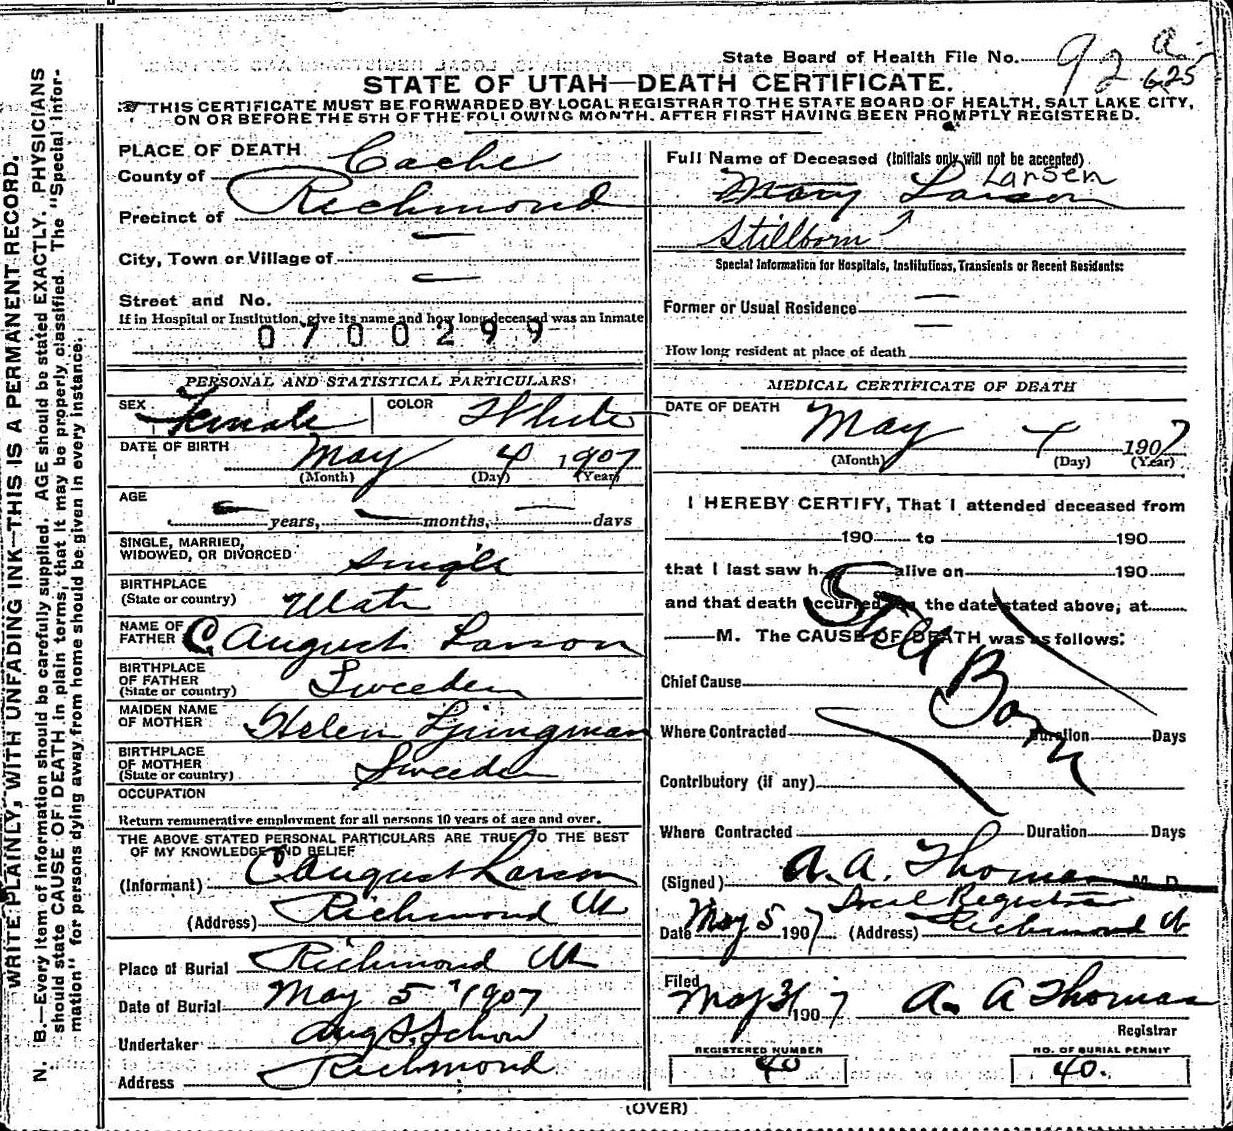 State Board of Health File No. 92 a 625
STATE OF UTAH—DEATH CERTIFICATE.
THIS CERTIFICATE MUST BE FORWARDED BY LOCAL REGISTRAR TO THE STATE BOARD OF HEALTH, SALT LAKE CITY,
ON OR BEFORE THE 5TH OF THE FOLLOWING MONTH, AFTER FIRST HAVING BEEN PROMPTLY REGISTERED.
WRITE PLAINLY, WITH UNFADING INK—THIS IS A PERMANENT RECORD.
N. B.—Every item of information should be carefully supplied. AGE should be stated EXACTLY. PHYSICIANS
should state CAUSE OF DEATH in plain terms, that it may be properly classified. The "Special Infor-
mation" for persons dying away from home should be given in every instance.
PLACE OF DEATH
County of Cache
Precinct of Richmond
City, Town or Village of —
Street and No. —
If in Hospital or Institution, give its name and how long deceased was an Inmate
0700299
PERSONAL AND STATISTICAL PARTICULARS
SEX Female COLOR White
DATE OF BIRTH May 4 1907
(Month) (Day) (Year)
AGE
— years, — months, — days
SINGLE, MARRIED,
WIDOWED, OR DIVORCED Single
BIRTHPLACE
(State or country) Utah
NAME OF
FATHER C August Larson
BIRTHPLACE
OF FATHER
(State or country) Sweeden
MAIDEN NAME
OF MOTHER Helen Ljungman
BIRTHPLACE
OF MOTHER
(State or country) Sweeden
OCCUPATION
Return remunerative employment for all persons 10 years of age and over.
THE ABOVE STATED PERSONAL PARTICULARS ARE TRUE TO THE BEST
OF MY KNOWLEDGE AND BELIEF
(Informant) C August Larson
(Address) Richmond Ut
Place of Burial Richmond Ut
Date of Burial May 5" 1907
Undertaker Aug S. Schow
Address Richmond
Full Name of Deceased (Initials only will not be accepted)
Larsen
Mary Larson
Stillborn
Special Information for Hospitals, Institutions, Transients or Recent Residents:
Former or Usual Residence —
—
How long resident at place of death
MEDICAL CERTIFICATE OF DEATH
DATE OF DEATH May 4 1907
(Month) (Day) (Year)
I HEREBY CERTIFY, That I attended deceased from
190 to 190
that I last saw h alive on 190
and that death occurred, on the date stated above, at
M. The CAUSE OF DEATH was as follows:
Still Born
Chief Cause
Where Contracted Duration Days
Contributory (if any)
Where Contracted Duration Days
(Signed) A. A. Thomas M. D.
Local Registrar
Date May 5 1907 (Address) Richmond Ut
Filed
May 31 1907 A. A Thomas
Registrar
REGISTERED NUMBER
40
NO. OF BURIAL PERMIT
40.
(OVER)